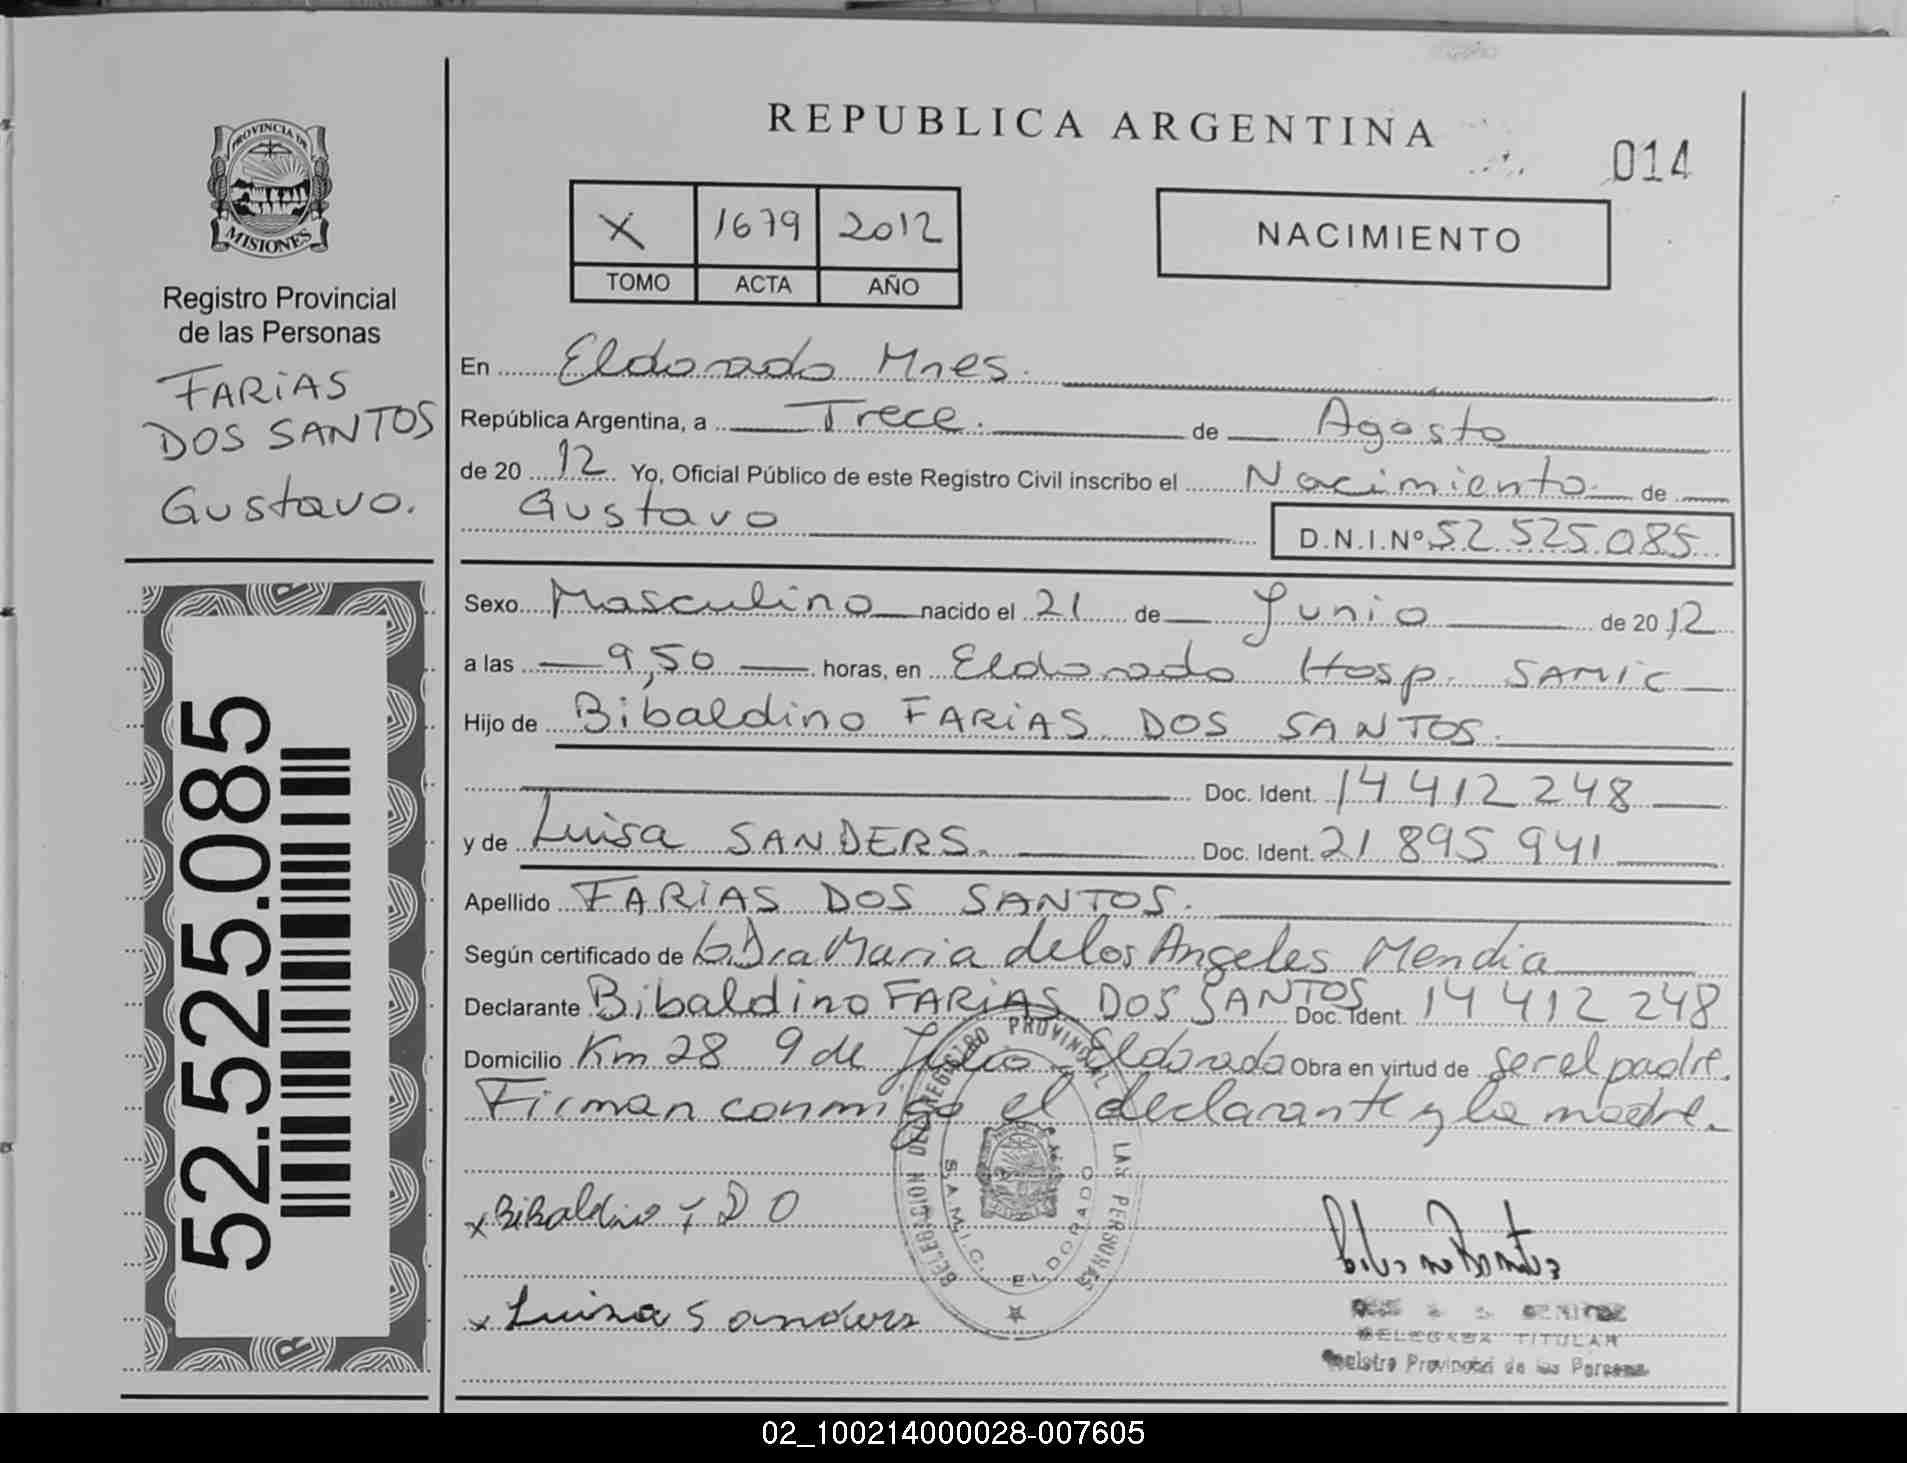 PROVINCIA DE
MISIONES
Registro Provincial
de las Personas
FARIAS
DOS SANTOS
Gustavo.
52.525.085
REPUBLICA ARGENTINA
014
X 1679 2012
TOMO ACTA AÑO
NACIMIENTO
En Eldorado Mnes.
República Argentina, a Trece. de Agosto
de 20 12 Yo, Oficial Público de este Registro Civil inscribo el Nacimiento de
Gustavo D.N.I.Nº 52 525.085
Sexo Masculino nacido el 21 de Junio de 20 12
a las 9,50 horas, en Eldorado Hosp. SAMIC
Hijo de Bibaldino FARIAS DOS SANTOS.
Doc. Ident. 14 412 248
y de Luisa SANDERS. Doc. Ident. 21 895 941
Apellido FARIAS DOS SANTOS.
Según certificado de la Dra Maria de los Angeles Mendia
Declarante Bibaldino FARIAS DOS SANTOS Doc. Ident. 14 412 248
Domicilio Km 28 9 de Julio Eldorado Obra en virtud de ser el padre.
Firman conmigo el declarante y la madre.
DELEGACION DEL REGISTRO PROVINCIAL DE LAS PERSONAS
S.A.M.I.C. ELDORADO
x Bibaldino F D O
x Luisa Sanders
BENITEZ
DELEGADA TITULAR
Registro Provincial de las Personas
02_100214000028-007605